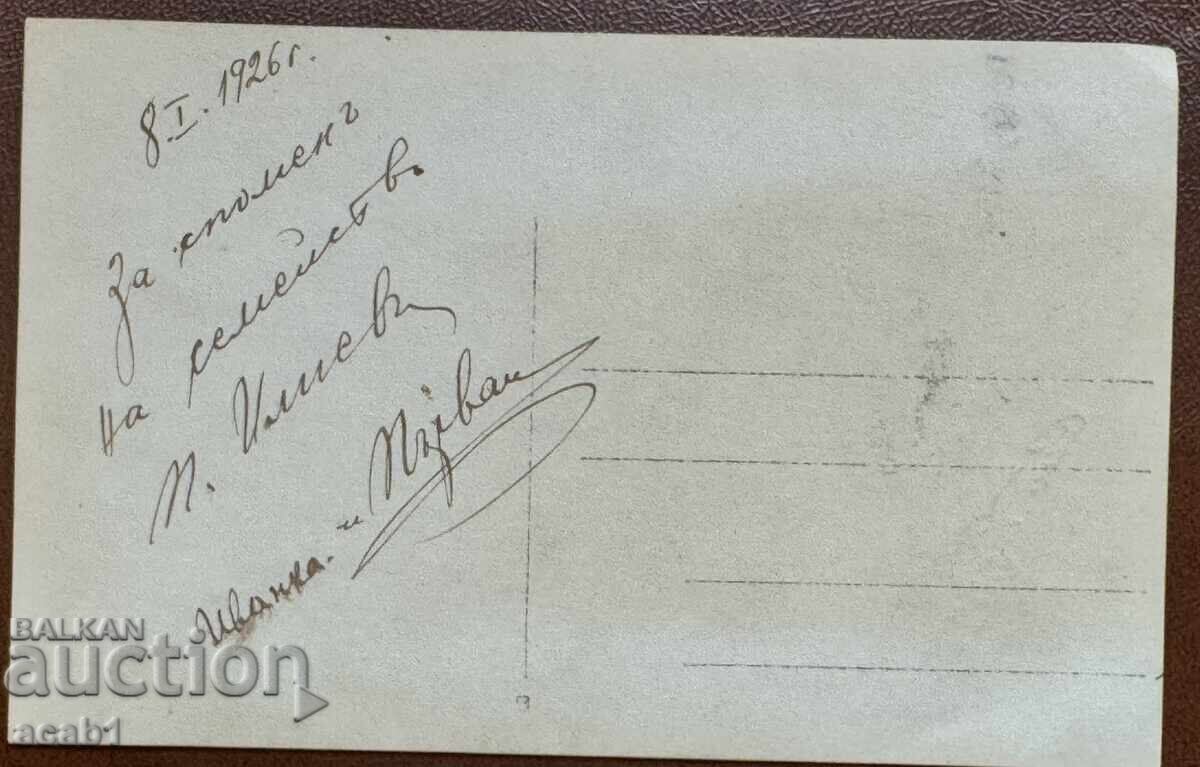 8.I.1926 г.
За споменъ
на семейство
П. Илиеви
Иванка и Първан
3
BALKAN
auction
acab1